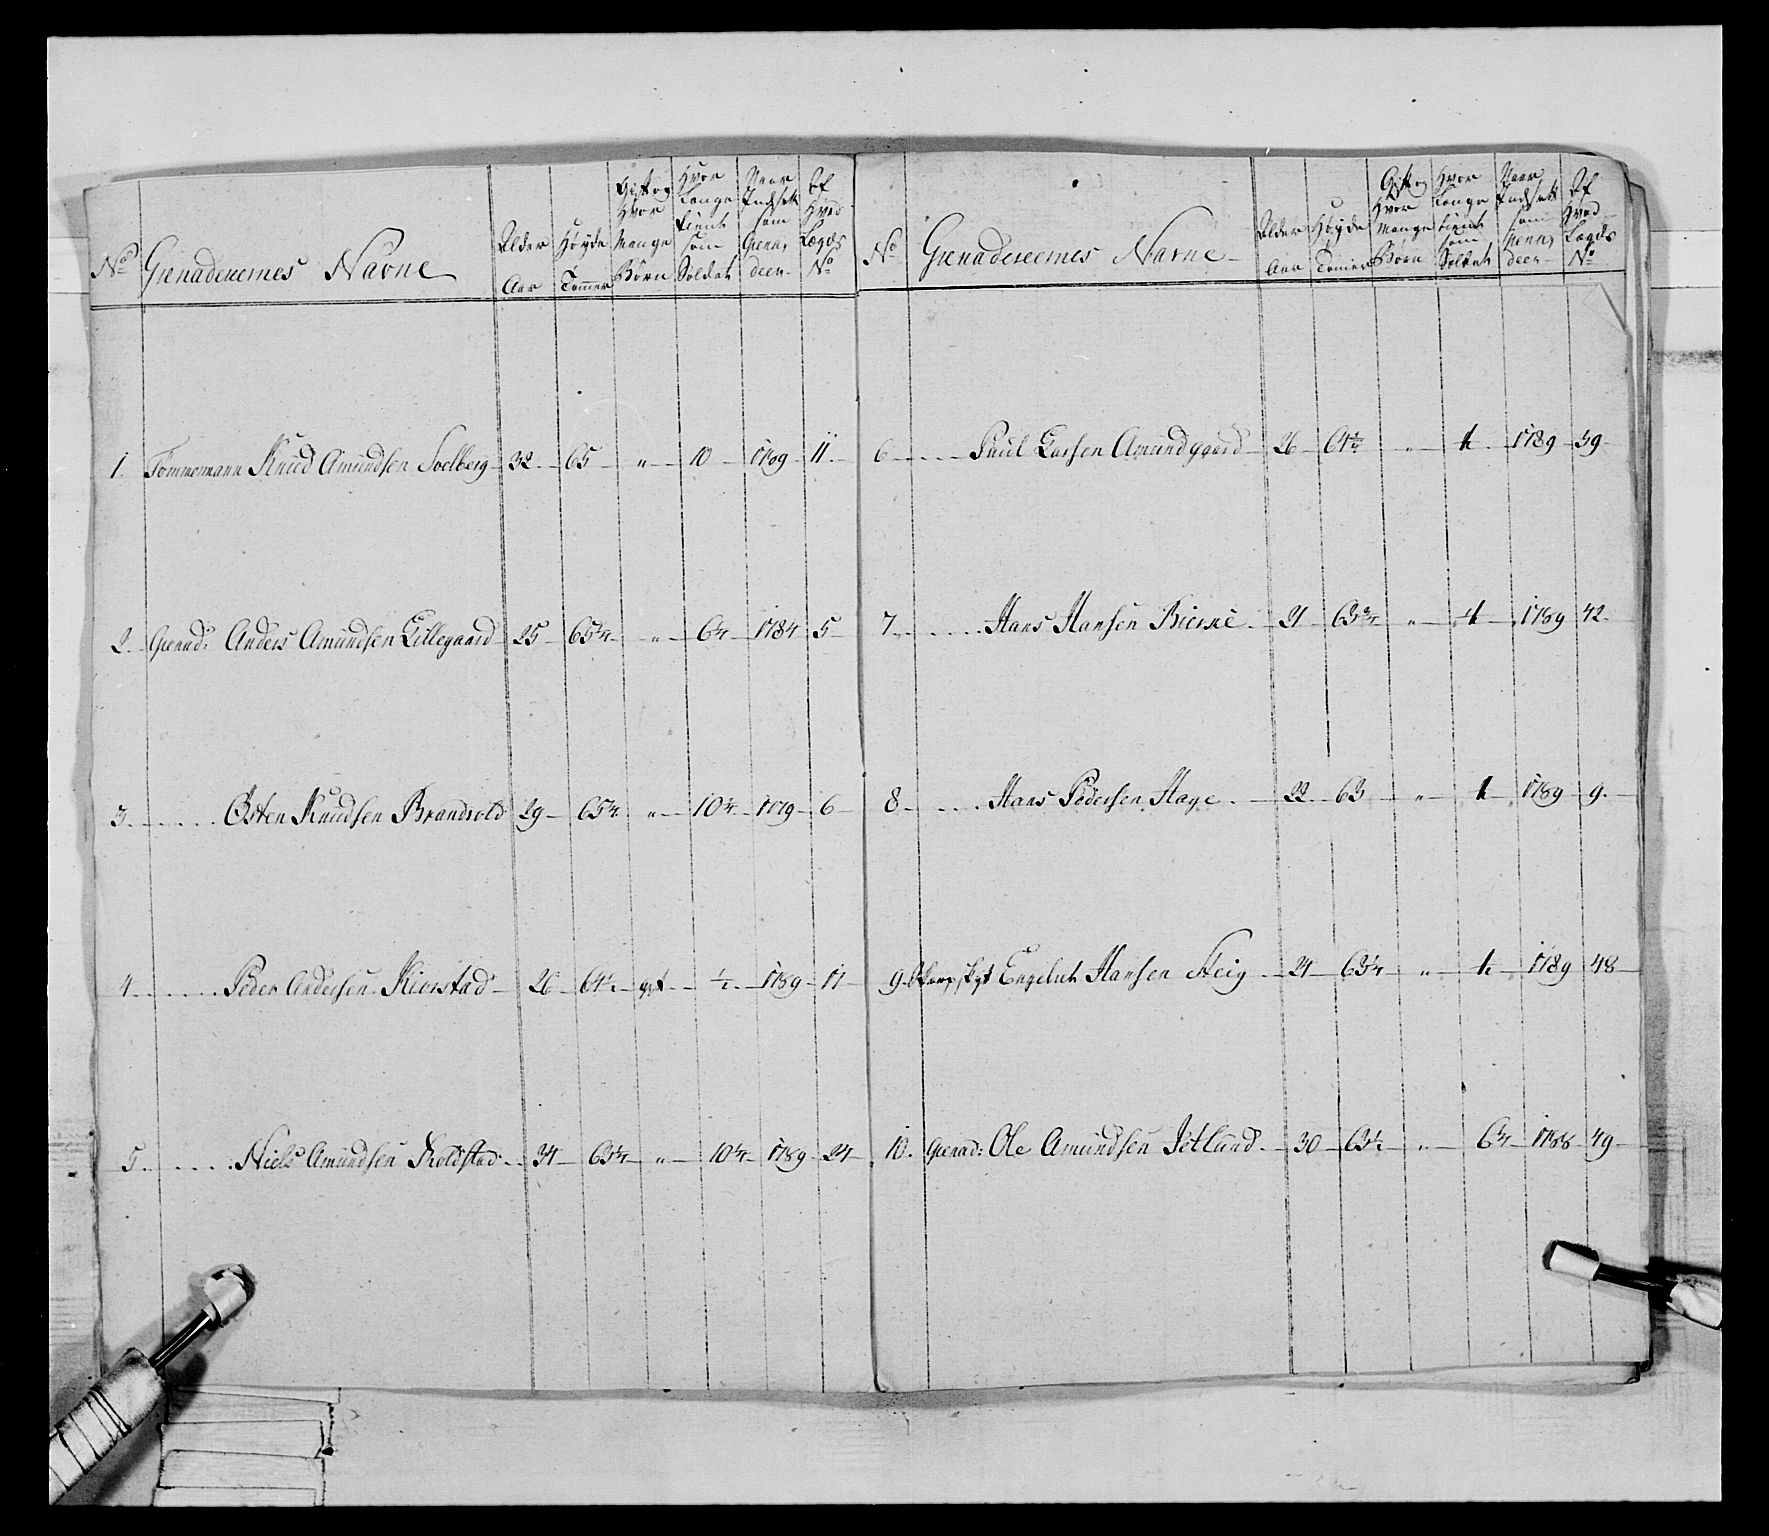 No Grenaderernes Navne Alder Aar Høyde Tommer Gift og Hvor Mange Børn Hvor Lange tient som Soldat Naar Indsatt som Grenadeer Af Hvad Lægds No
1. Tømmermann Knud Amundsen Soelberg 32 65 " 10 1789 11
2. Grenad: Anders Amundsen Lillegaard 25 65 1/4 " 6 1/4 1784 5
3. Østen Knudsen Brandvold 29 " 1779 6
4. Peder Andersen Kierstad 26 64 1/2 gift 1/2 1789 17
5. Niels Amundsen Koldstad 34 63 1/4 " 10 1/4 1789 24
No Grenaderernes Navne Alder Aar Høyde Tommer Gift og Hvor Mange Børn Hvor Lange tient som Soldat Naar Indsatt som Grenadeer Af Hvad Lægds No
6 Paul Larsen Amundgaard 26 " 1789 39
7. Hans Hansen Bierke 21 " 1789 42
8. Hans Pedersen Hage 22 63 " 1789 9
9. Engebret Hansen Steig 24 63 1/4 " 1789 48
10. Grenad: Ole Amundsen Jetlund 30 63 1/2 " 1788 49